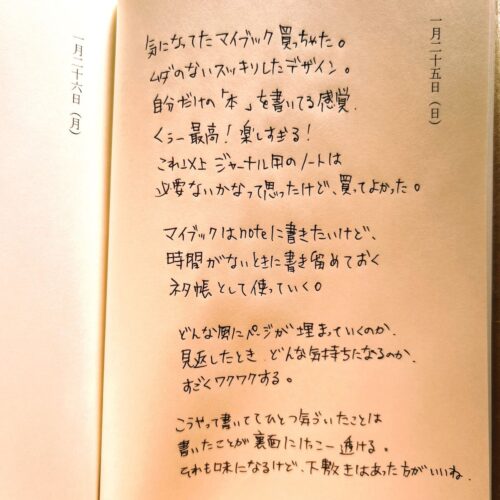 一月二十五日（日）
気になってたマイブック買っちゃた。
ムダのないスッキリしたデザイン。
自分だけの「本」を書いてる感覚.
くぅー最高！楽しすぎる！
これ以上ジャーナル用のノートは
必要ないかなって思ったけど、買ってよかった。
マイブックはnoteに書きたいけど、
時間がないときに書き留めておく
ネタ帳として使っていく。
どんな風にページが埋まっていくのか、
見返したとき どんな気持ちになるのか、
すごくワクワクする。
こうやって書いててひとつ気づいたことは
書いたことが裏面にけっこー透ける。
それも味になるけど、下敷きはあった方がいいね.
一月二十六日（月）